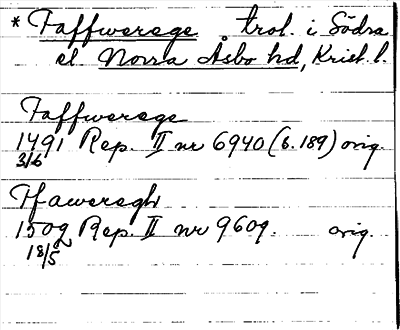 * Faffwerøge trol. i Södra
el Norra Åsbo hd, Krist. l.
Faffwerøge
1491 Rep. II nr 6940 (b. 189) orig.
3/6
Pfawerøgh
1509 Rep. II nr 9609. orig.
18/5